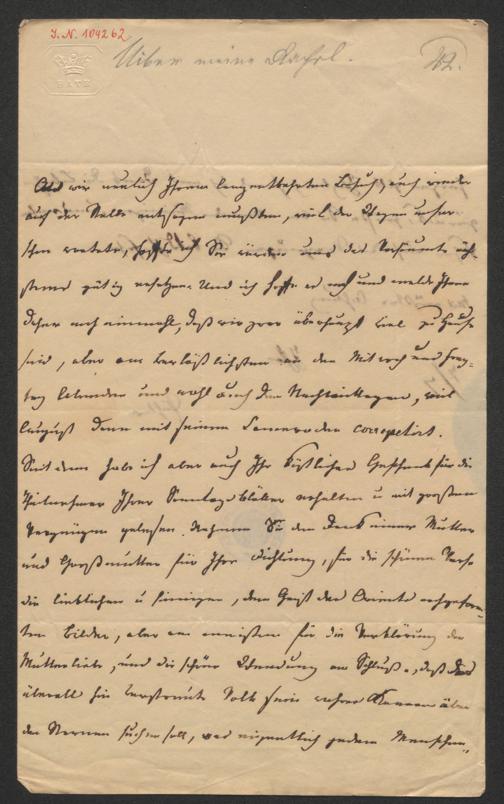 I. N. 104262
BATH
Ueber meine Rahel.
Als wir neulich Ihrem langentbehrten Besuch, auch wieder
auch der Stelle entsagen mußten, weil der Regen unser
schon wartete, hoffte ich Sie würden uns das Versäumte näch-
stens gütig ersetzen. Und ich hoffe es noch und melde Ihnen
daher noch einmahl, daß wir zwar überhaupt viel zu Hause
sind, aber am verläßlichsten an den Mittwoch und Frey-
tag Abenden und wohl auch den Nachmittagen, weil
August dann mit seinem Cameraden correpetirt.
Seitdem hab ich aber auch Ihr köstliches Geschenk für die
Theilnehmer Ihrer Sonntagsblätter erhalten u mit großem
Vergnügen gelesen. Nehmen Sie den Dank einer Mutter
und Großmutter für Ihre Dichtung, für die schönen Verse
die lieblichen u sinnigen, dem Geist des Orients entsproße-
nen Bilder, aber am meisten für die Verklärung der
Mutterliebe, und die schöne Wendung am Schluß, daß das
überall hin verstreute Volk sein wahres Kanaan über
den Sternen suchen soll, was eigentlich jedem Menschen,